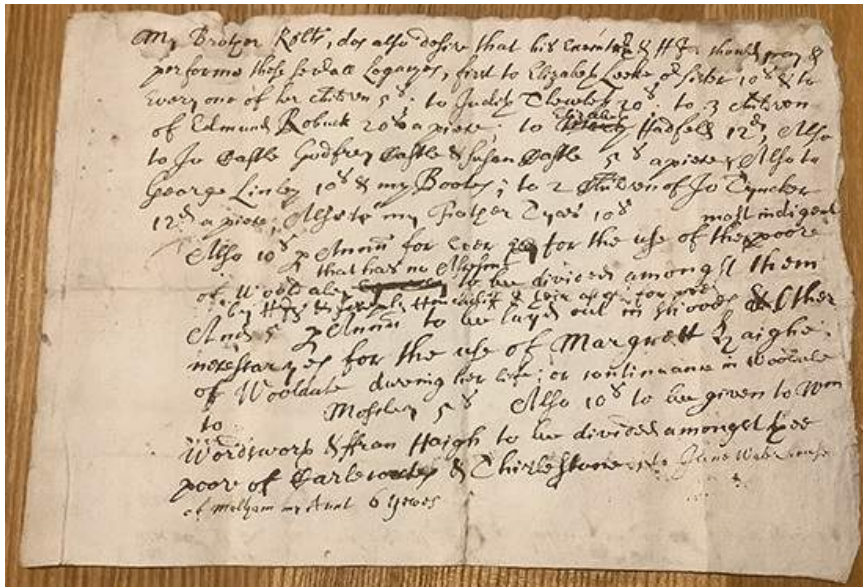 My Brother Robts, dos also desire that his Executr & H should pay &
performe these severall Legacyes, first to Elizabeth Leeke or sister 10s & to
Every one of her children 5s; to Judith Clewley 20s; to 3 children
of Edmund Robuck 20s a piece; to Elizabeth Hadfeld 12d, Also
to Jo Castle Godfrey Castle & Susan Castle 5s a piece; Also to
George Linley 10s & my Bootes; to 2 Children of Jo Tyncker
12d a piece; Also to my Father Tyas 10s
most indigent
Also 10s p Annm for ever for the use of the poore
that has no
of Wooldale to be divided amongst them
by &
And 5s p Annm to be layd out in shooes & Other
necessaryes for the use of Margrett Haighe
of Wooldale dureing her life; or continuance in Wooldale
to Mosley 5s Also 10s to be given to Wm
Wordsworth & ffran Haigh to be divided amongst the
poor of Carlecoates & Thurlestone to Jane Waterhouse
of Meltham my Aunt 6 yewes